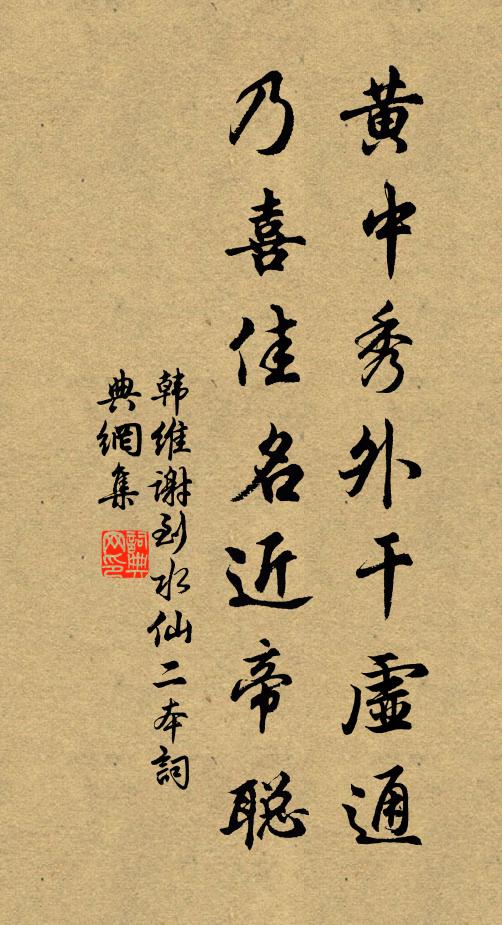 黄中秀外干虚通
乃喜佳名近帝聪
韩维谢到水仙二本词
典網集
詞典網印